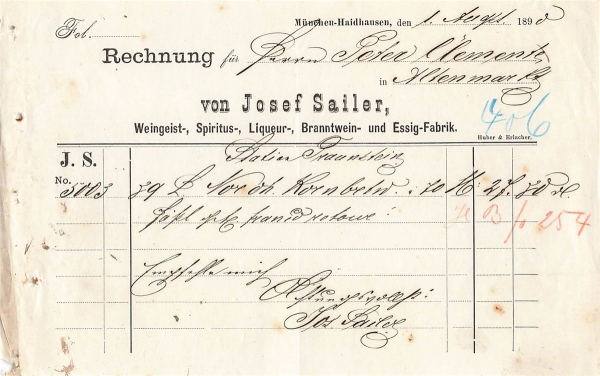 Fol.
München-Haidhausen, den 1. Augst 1890
Rechnung für Herrn Peter Clement
in Altenmarkt
von Josef Sailer,
Weingeist-, Spiritus-, Liqueur-, Branntwein- und Essig-Fabrik.
406
Huber & Erlacher.
J. S.
Station Traunstein
No. 5003 39 L Nordh. Kornbrtw. 70 M 27. 30
franco retour!
254
Empfehle mich
Achtungsvollst:
Jos. Sailer